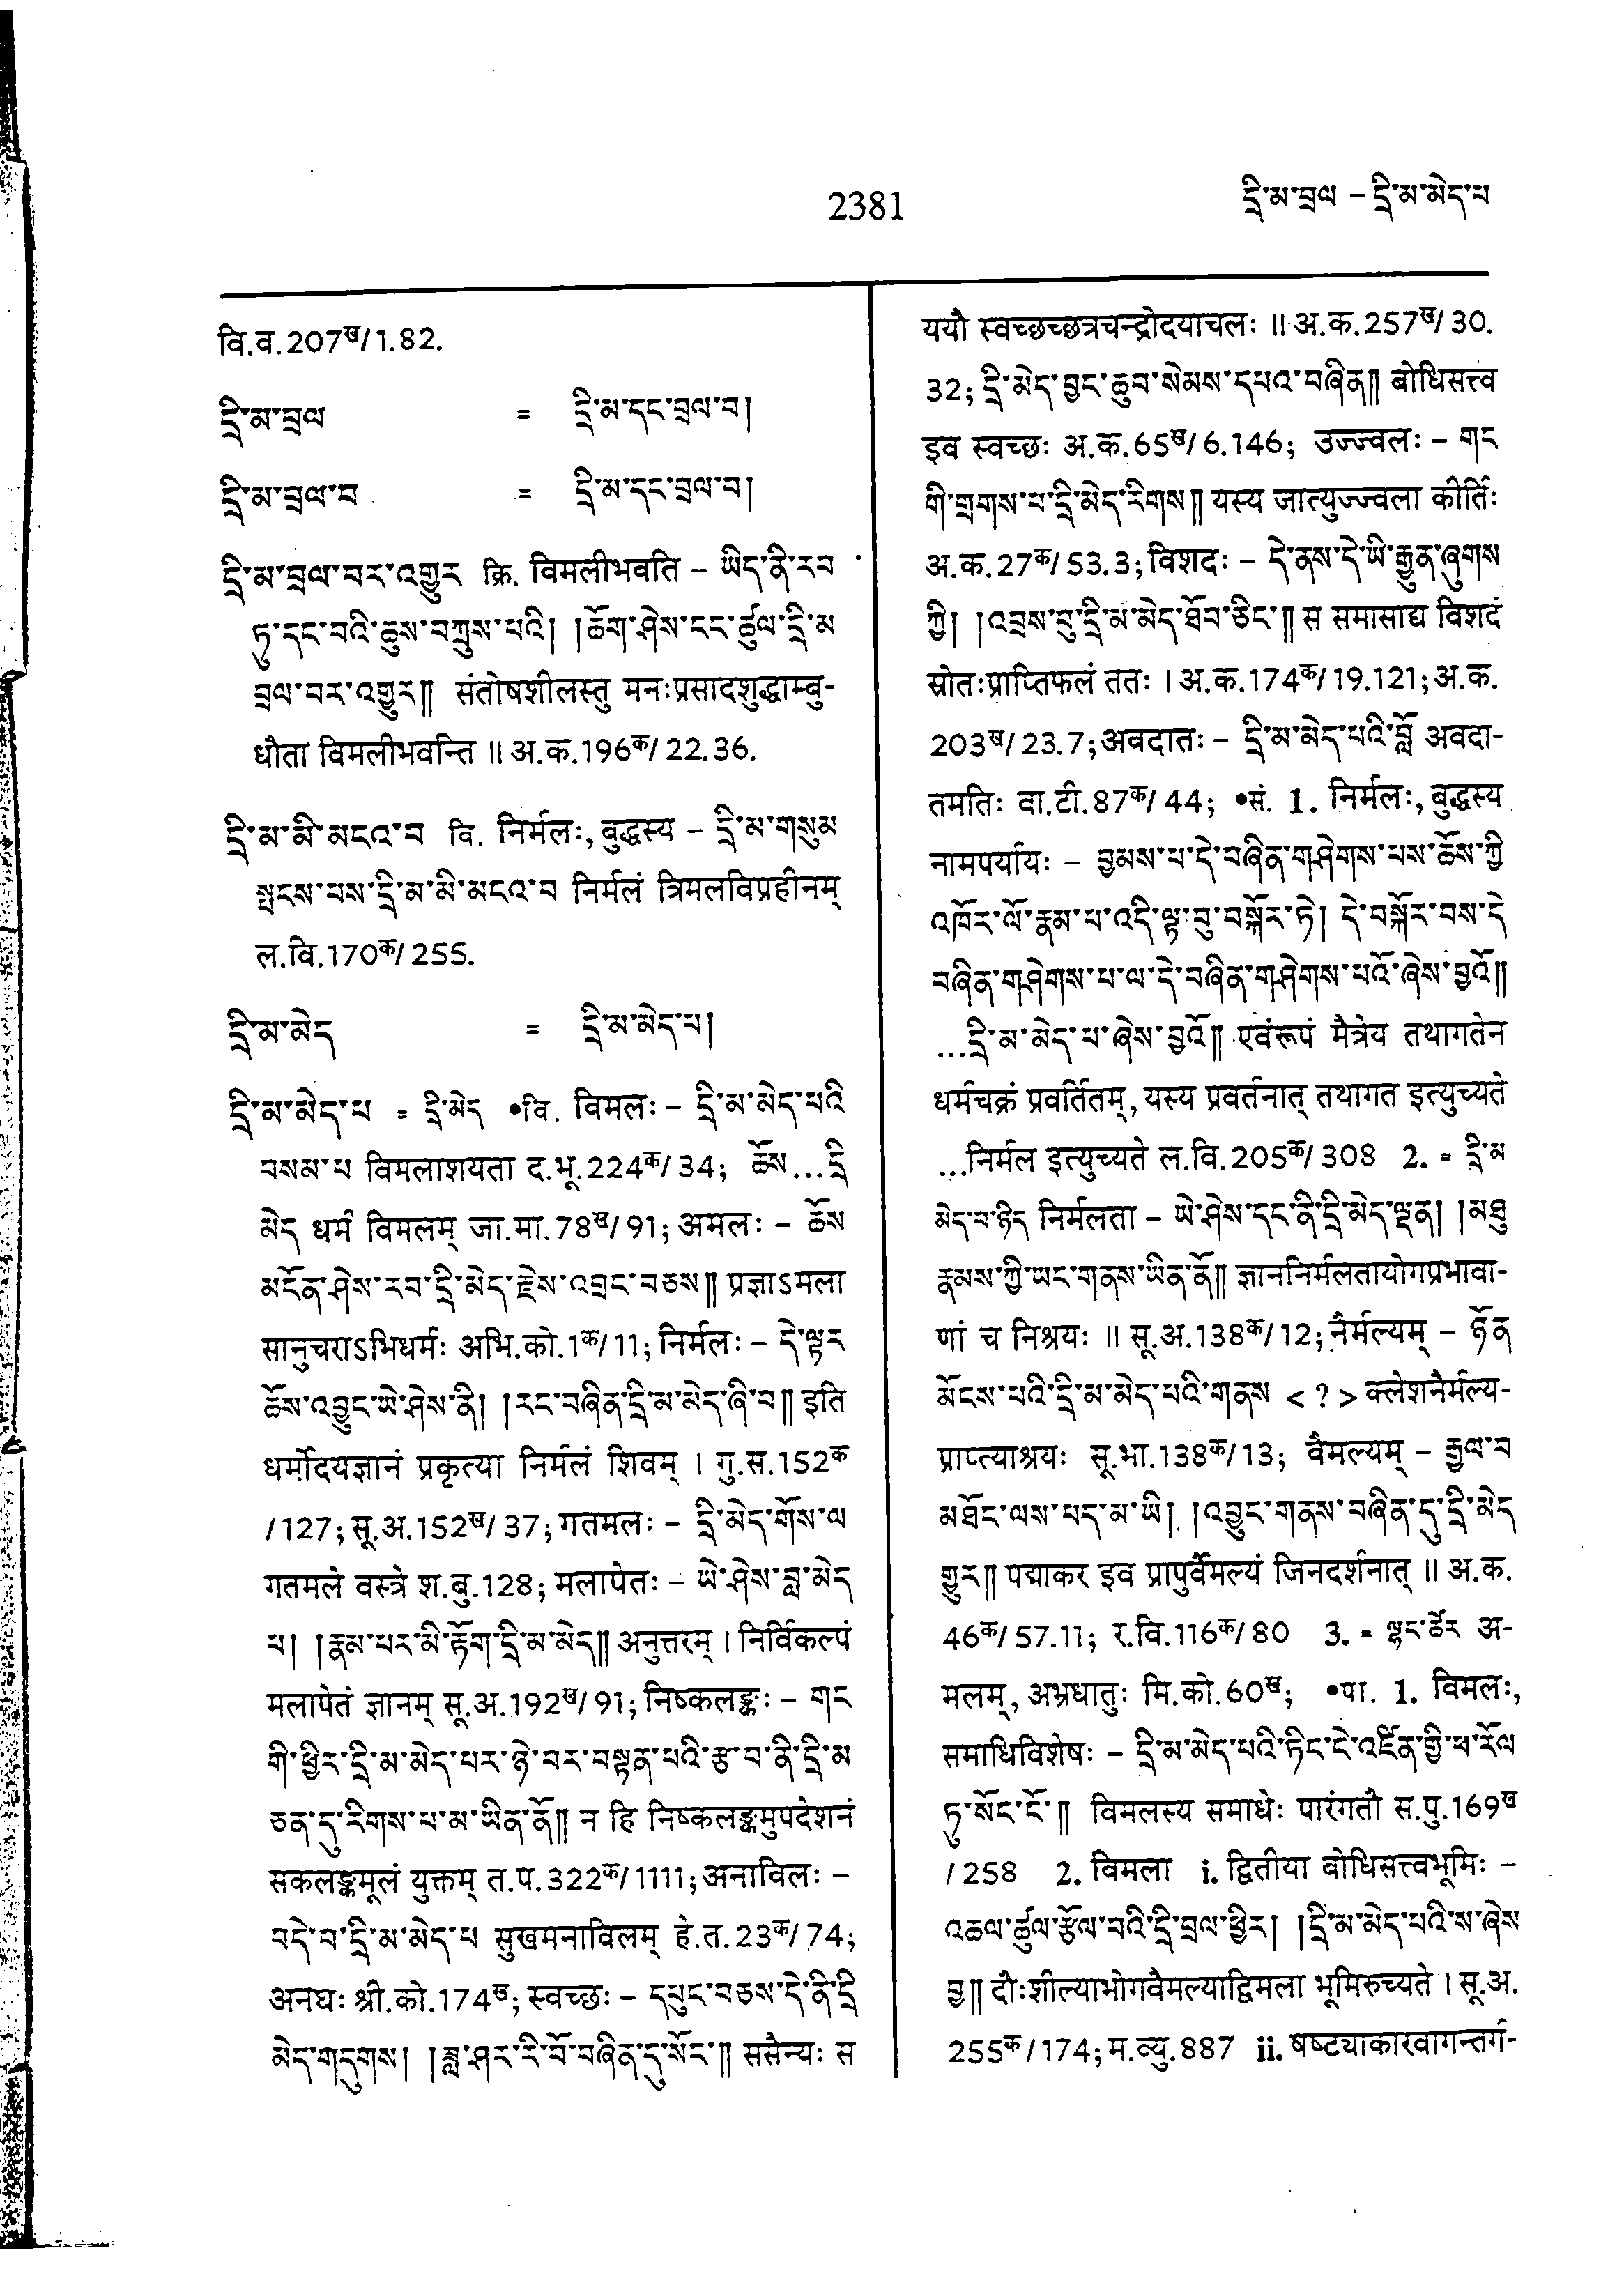 2381
དྲི་མ་བྲལ – དྲི་མ་མེད་པ
वि.व.207ख/1.82.
དྲི་མ་བྲལ = དྲི་མ་དང་བྲལ་བ།
དྲི་མ་བྲལ་བ = དྲི་མ་དང་བྲལ་བ།
དྲི་མ་བྲལ་བར་འགྱུར क्रि. विमलीभवति – ཡིད་ནི་རབ
ཏུ་དང་བའི་ཆུས་བཀྲུས་པའི། །ཆོག་ཤེས་ངང་ཚུལ་དྲི་མ
བྲལ་བར་འགྱུར༎ संतोषशीलस्तु मनःप्रसादशुद्धाम्बु-
धौता विमलीभवन्ति ॥ अ.क.196क/22.36.
དྲི་མ་མི་མངའ་བ वि. निर्मलः, बुद्धस्य – དྲི་མ་གསུམ
སྤངས་པས་དྲི་མ་མི་མངའ་བ निर्मलं त्रिमलविप्रहीनम्
ल.वि.170क/255.
དྲི་མ་མེད = དྲི་མ་མེད་པ།
དྲི་མ་མེད་པ = དྲི་མེད •वि. विमलः – དྲི་མ་མེད་པའི
བསམ་པ विमलाशयता द.भू.224क/34; ཆོས...དྲི
མེད धर्मं विमलम् जा.मा.78ख/91; अमलः – ཆོས
མངོན་ཤེས་རབ་དྲི་མེད་རྗེས་འབྲང་བཅས༎ प्रज्ञाऽमला
सानुचराऽभिधर्मः अभि.को.1क/11; निर्मलः – དེ་ལྟར
ཆོས་འབྱུང་ཡེ་ཤེས་ནི། །རང་བཞིན་དྲི་མ་མེད་ཞི་བ༎ इति
धर्मोदयज्ञानं प्रकृत्या निर्मलं शिवम् । गु.स.152क
/127; सू.अ.152ख/37; गतमलः – དྲི་མེད་གོས་ལ
गतमले वस्त्रे श.बु.128; मलापेतः – ཡེ་ཤེས་བླ་མེད
པ། །རྣམ་པར་མི་རྟོག་དྲི་མ་མེད༎ अनुत्तरम् । निर्विकल्पं
मलापेतं ज्ञानम् सू.अ.192ख/91; निष्कलङ्कः – གང
གི་ཕྱིར་དྲི་མ་མེད་པར་ཉེ་བར་བསྟན་པའི་རྩ་བ་ནི་དྲི་མ
ཅན་དུ་རིགས་པ་མ་ཡིན་ནོ༎ न हि निष्कलङ्कमुपदेशनं
सकलङ्कमूलं युक्तम् त.प.322क/1111; अनाविलः –
བདེ་བ་དྲི་མ་མེད་པ सुखमनाविलम् हे.त.23क/74;
अनघः श्री.को.174ख; स्वच्छः – དཔུང་བཅས་དེ་ནི་དྲི
མེད་གདུགས། །ཟླ་ཤར་རི་བོ་བཞིན་དུ་སོང་༎ ससैन्यः स
ययौ स्वच्छच्छत्रचन्द्रोदयाचलः ॥ अ.क.257ख/30.
32; དྲི་མེད་བྱང་ཆུབ་སེམས་དཔའ་བཞིན༎ बोधिसत्त्व
इव स्वच्छः अ.क.65ख/6.146; उज्ज्वलः – གང
གི་གྲགས་པ་དྲི་མེད་རིགས༎ यस्य जात्युज्ज्वला कीर्तिः
अ.क.27क/53.3; विशदः – དེ་ནས་དེ་ཡི་རྒྱུན་ཞུགས
ཀྱི། །འབྲས་བུ་དྲི་མ་མེད་ཐོབ་ཅིང་༎ स समासाद्य विशदं
स्रोतःप्राप्तिफलं ततः । अ.क.174क/19.121; अ.क.
203ख/23.7; अवदातः – དྲི་མ་མེད་པའི་བློ अवदा-
तमतिः वा.टी.87क/44; •सं. 1. निर्मलः, बुद्धस्य
नामपर्यायः – བྱམས་པ་དེ་བཞིན་གཤེགས་པས་ཆོས་ཀྱི
འཁོར་ལོ་རྣམ་པ་འདི་ལྟ་བུ་བསྐོར་ཏེ། དེ་བསྐོར་བས་དེ
བཞིན་གཤེགས་པ་ལ་དེ་བཞིན་གཤེགས་པའོ་ཞེས་བྱའོ༎
...དྲི་མ་མེད་པ་ཞེས་བྱའོ༎ एवंरूपं मैत्रेय तथागतेन
धर्मचक्रं प्रवर्तितम्, यस्य प्रवर्तनात् तथागत इत्युच्यते
...निर्मल इत्युच्यते ल.वि.205क/308 2. = དྲི་མ
མེད་པ་ཉིད निर्मलता – ཡེ་ཤེས་དང་ནི་དྲི་མེད་ལྡན། །མཐུ
རྣམས་ཀྱི་ཡང་གནས་ཡིན་ནོ༎ ज्ञाननिर्मलतायोगप्रभावा-
णां च निश्रयः ॥ सू.अ.138क/12; नैर्मल्यम् – ཉོན
མོངས་པའི་དྲི་མ་མེད་པའི་གནས < ? > क्लेशनैर्मल्य-
प्राप्त्याश्रयः सू.भा.138क/13; वैमल्यम् – རྒྱལ་བ
མཐོང་ལས་པད་མ་ཡི། །འབྱུང་གནས་བཞིན་དུ་དྲི་མེད
གྱུར༎ पद्माकर इव प्रापुर्वैमल्यं जिनदर्शनात् ॥ अ.क.
46क/57.11; र.वि.116क/80 3. = ལྷང་ཚེར अ-
मलम्, अभ्रधातुः मि.को.60ख; •पा. 1. विमलः,
समाधिविशेषः – དྲི་མ་མེད་པའི་ཏིང་ངེ་འཛིན་གྱི་ཕ་རོལ
ཏུ་སོང་ངོ་༎ विमलस्य समाधेः पारंगतौ स.पु.169ख
/258 2. विमला i. द्वितीया बोधिसत्त्वभूमिः –
འཆལ་ཚུལ་རྩོལ་བའི་དྲི་བྲལ་ཕྱིར། །དྲི་མ་མེད་པའི་ས་ཞེས
བྱ༎ दौःशील्याभोगवैमल्याद्विमला भूमिरुच्यते । सू.अ.
255क/174; म.व्यु.887 ii. षष्ट्याकारवागन्तर्ग-